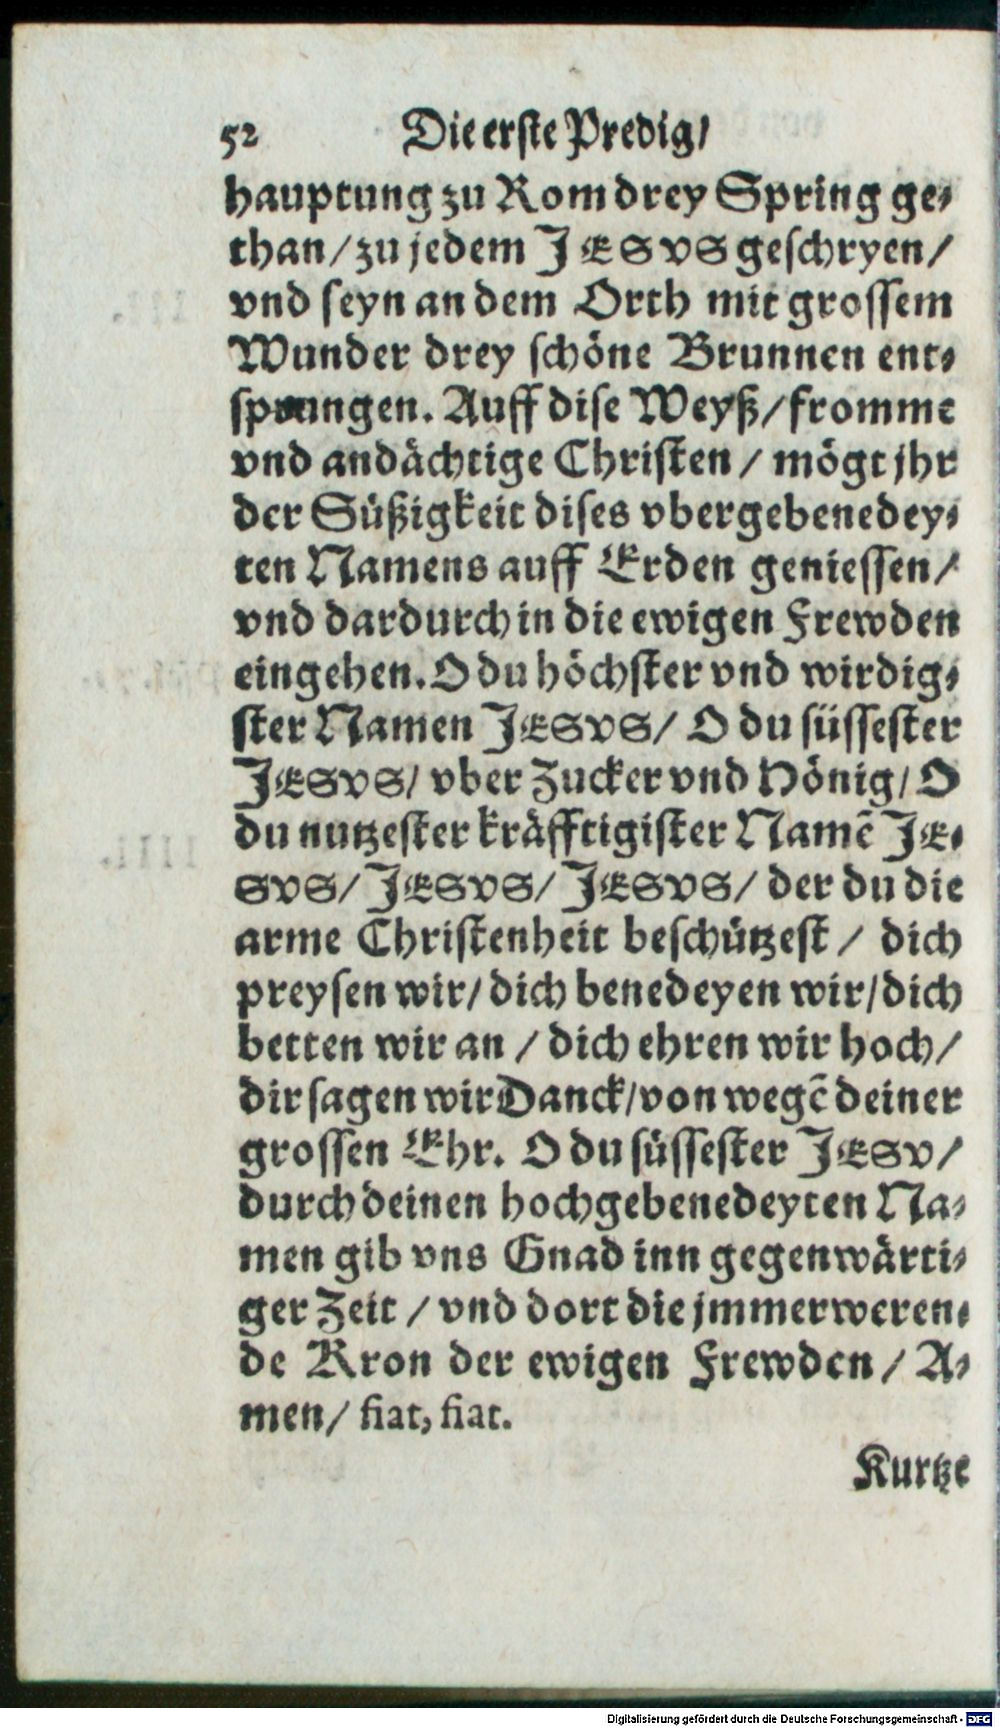 52 Die erste Predig/
hauptung zu Rom drey Spring ge-
than/zu jedem JESVS geschryen/
vnd seyn an dem Orth mit grossem
Wunder drey schöne Brunnen ent-
sprungen. Auff dise Weyß/fromme
vnd andächtige Christen/ mögt jhr
der Süßigkeit dises vbergebenedey-
ten Namens auff Erden geniessen/
vnd dardurch in die ewigen Frewden
eingehen. O du höchster vnd wirdig-
ster Namen JESVS/ O du süssester
JESVS/ vber Zucker vnd Hönig/ O
du nutzester kräfftigister Namẽ JE-
SVS/ JESVS/ JESVS/ der du die
arme Christenheit beschützest/ dich
preysen wir/ dich benedeyen wir/dich
betten wir an/ dich ehren wir hoch/
dir sagen wir Danck/von wegẽ deiner
grossen Ehr. O du süssester JESV/
durch deinen hochgebenedeyten Na-
men gib vns Gnad inn gegenwärti-
ger Zeit/ vnd dort die jmmerweren-
de Kron der ewigen Frewden/ A-
men/ fiat, fiat.
Kurtze
Digitalisierung gefördert durch die Deutsche Forschungsgemeinschaft - DFG